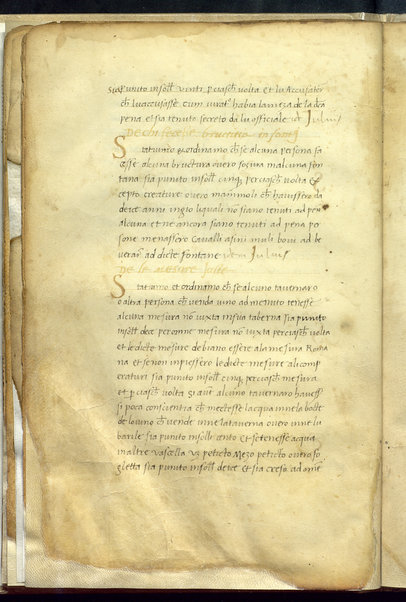 sia punito in soll venti p ciascħ volta et lu Accusator
cħ lu accusasse cum iurato habia la mitza de la dicta
pena et sia tenuto secreto da lu officiale
De chi facesse bructura in fonte
Statuimo et ordinamo cħ se alcuna persona fa
cesse alcuna bructura overo soczura in alcuna fon
tana sia punito in soll cinq per ciascħ volta ex
cepto creature overo mammoli cħ havessero da
dece anni in giu li quali no siano tenuti ad pena
alcuna et ne ancora siano tenuti ad pena per
sone menassero Cavalli asini muli bovi ad be
verar ad dicte fontane
De le mesure juste
Statuimo et ordinamo cħ se alcuno tavernaro
o altra persona cħ venda vino ad menuto tenesse
alcuna mesura no iuxta in sua taberna sia punito
in soll dece per omne mesura no iuxta per ciascħ volta
et le dicte mesure debiano essere a la mesura Roma
na et se non impiessero le dicte mesure ali comp
eraturi sia punito in soll cinq per ciascħ mesura
et p ciascħ volta Et si alcuno tavernaro havess
si poca conscientia cħ mectesse la acqua inne la bocte
de lo vino cħ vende inne la taverna overo inne lu
barile sia punito in soll cento et se tenesse acqua
in altre vascella peticto Mezo peticto overo fo
glietta sia punito in soll dece et sia creso ad omne